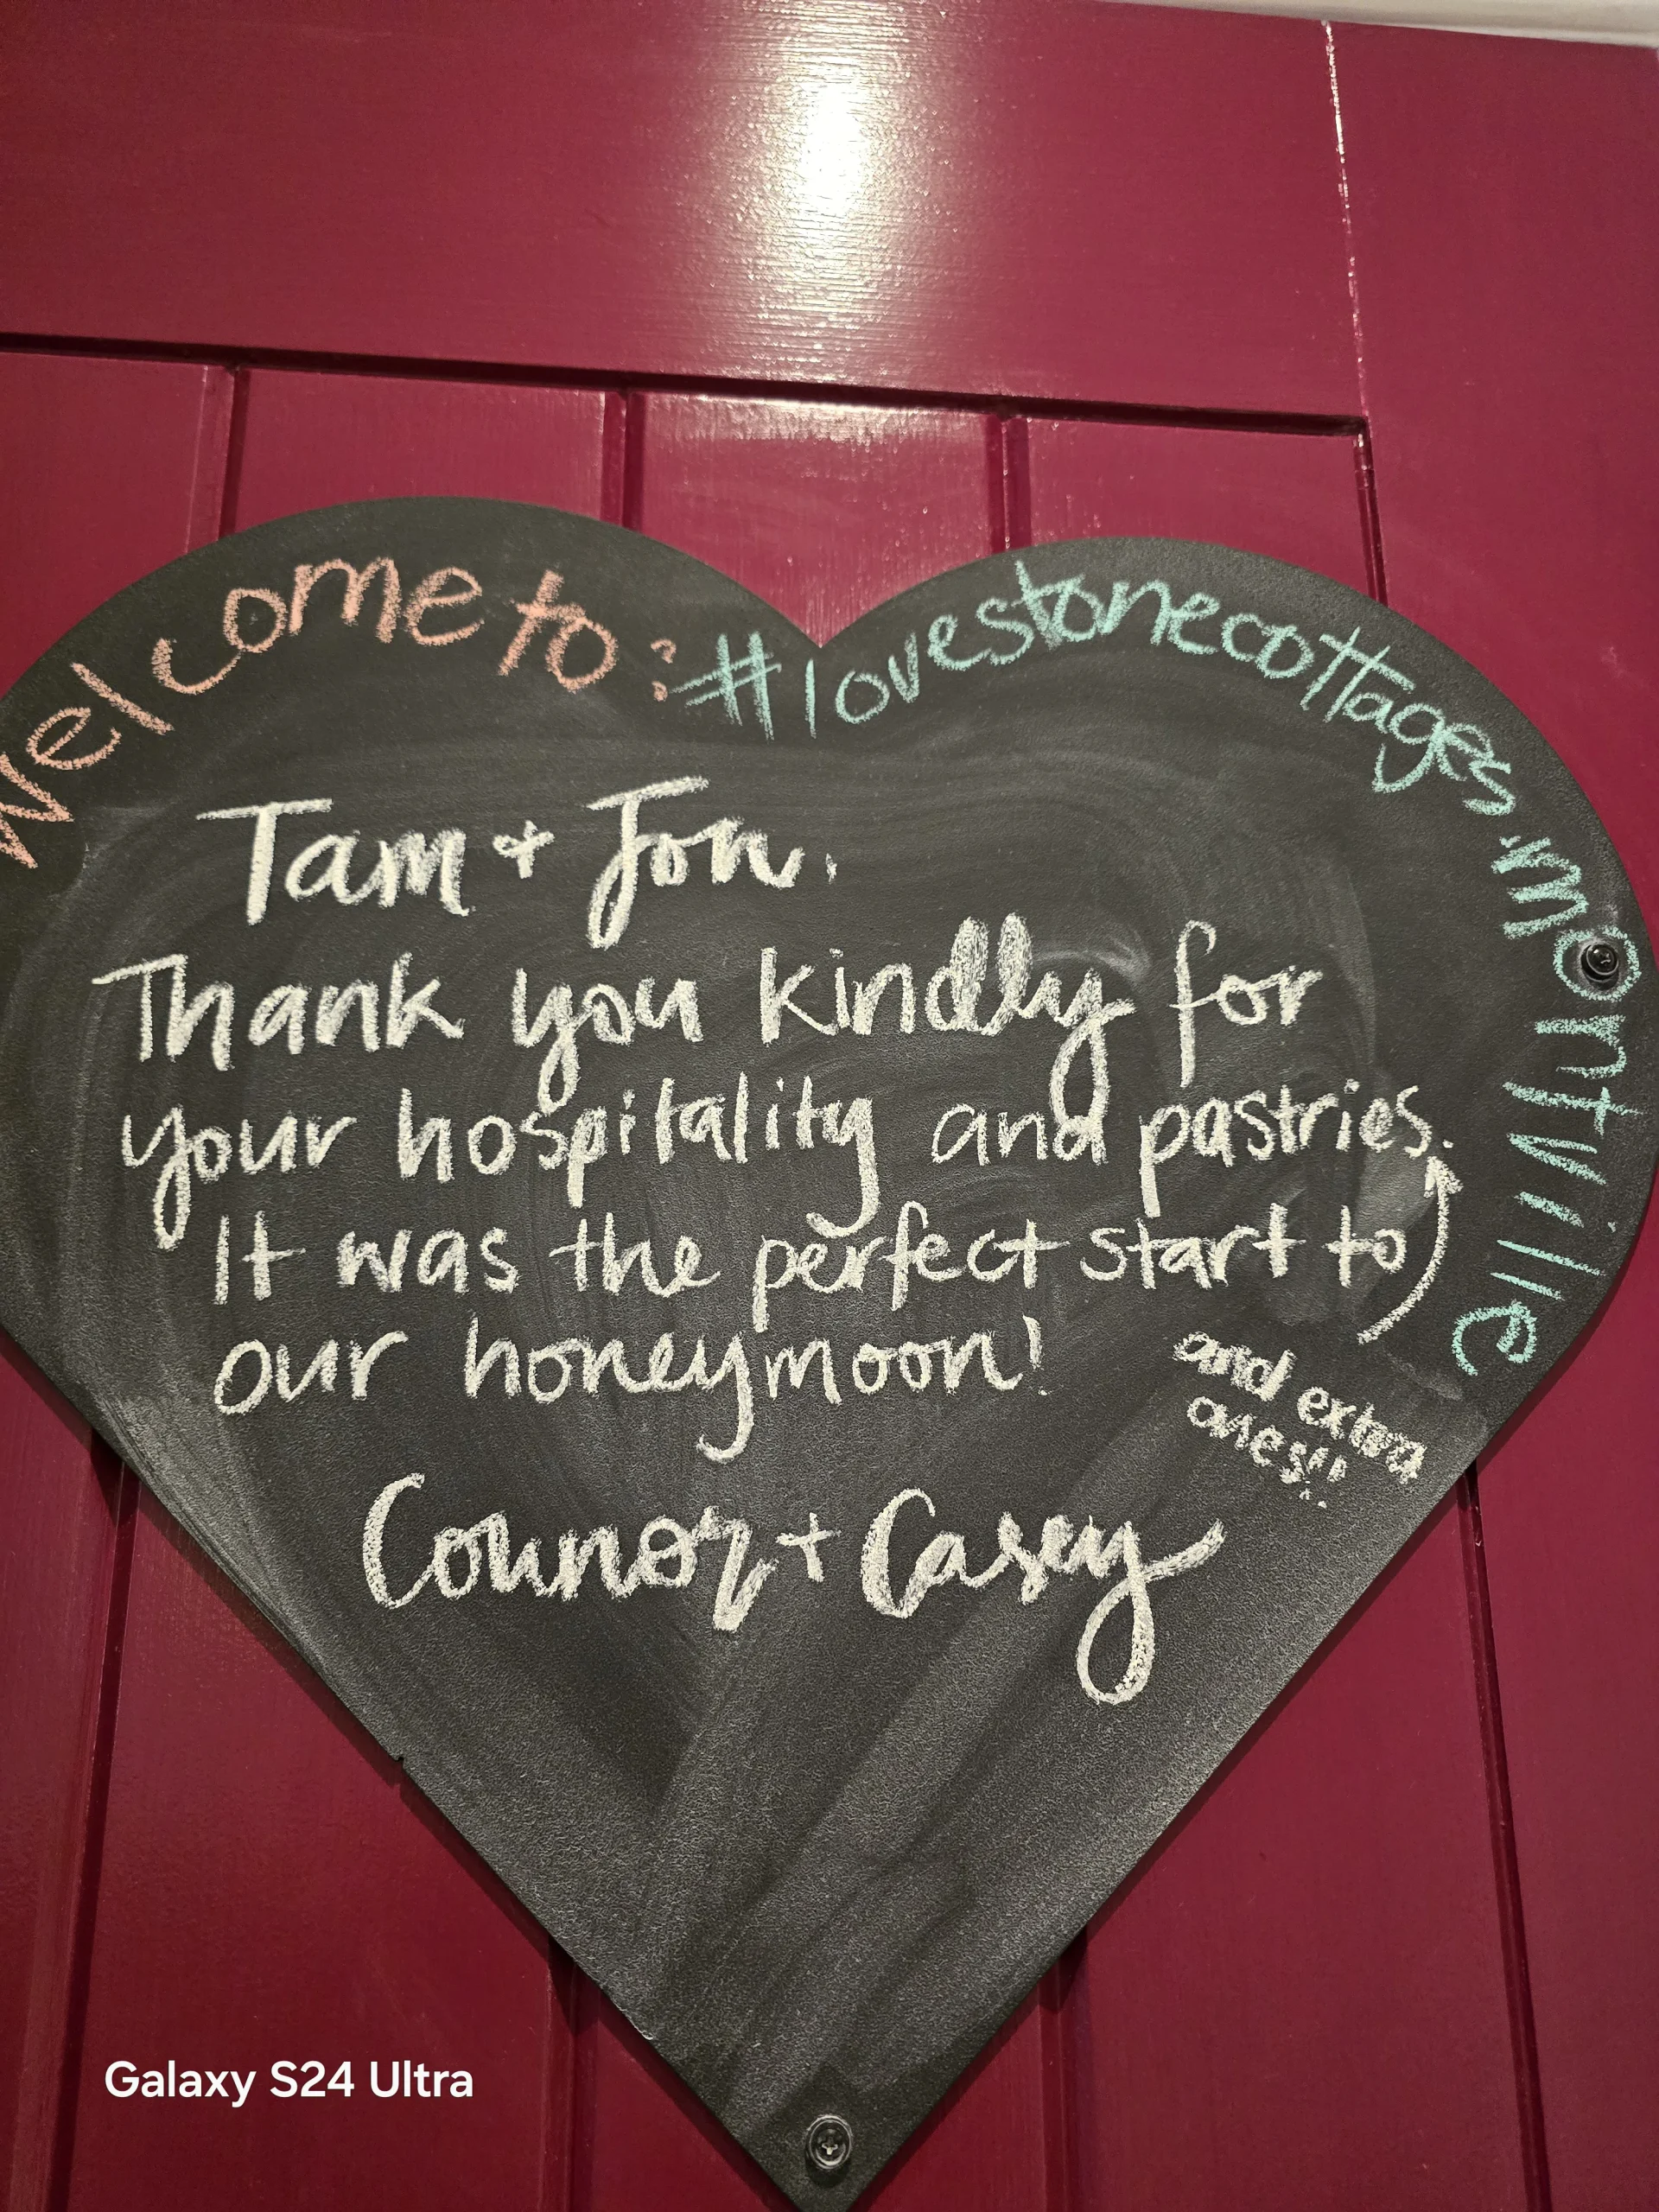 welcome to: #lovestonecottages.montville
Tam + Jon.
Thank you kindly for
your hospitality and pastries.
It was the perfect start to
our honeymoon!
and extra
ones!!
Connor + Casey
Galaxy S24 Ultra